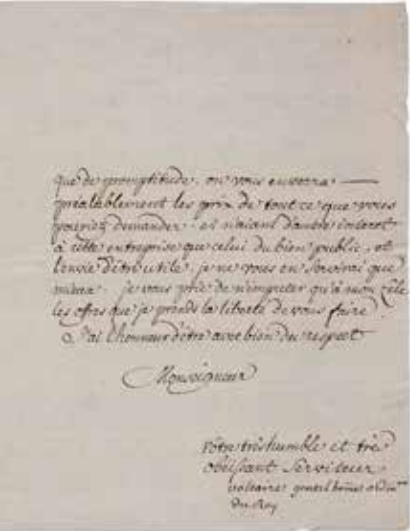 que de promptitude. on vous enverra —
préalablement les prix de tout ce que vous
pouriez demander. et n'aiant d'autre interest
à cette entreprise que celui du bien public, et
l'envie d'être utile, je ne vous en servirai que
mieux. je vous prie de n'imputer qu'à mon zèle
les offres que je prends la liberté de vous faire
J'ai l'honneur d'être avec bien du respect
Monseigneur
Vôtre très humble et très
obéissant serviteur
voltaire gentilhome ordin^re
du Roy